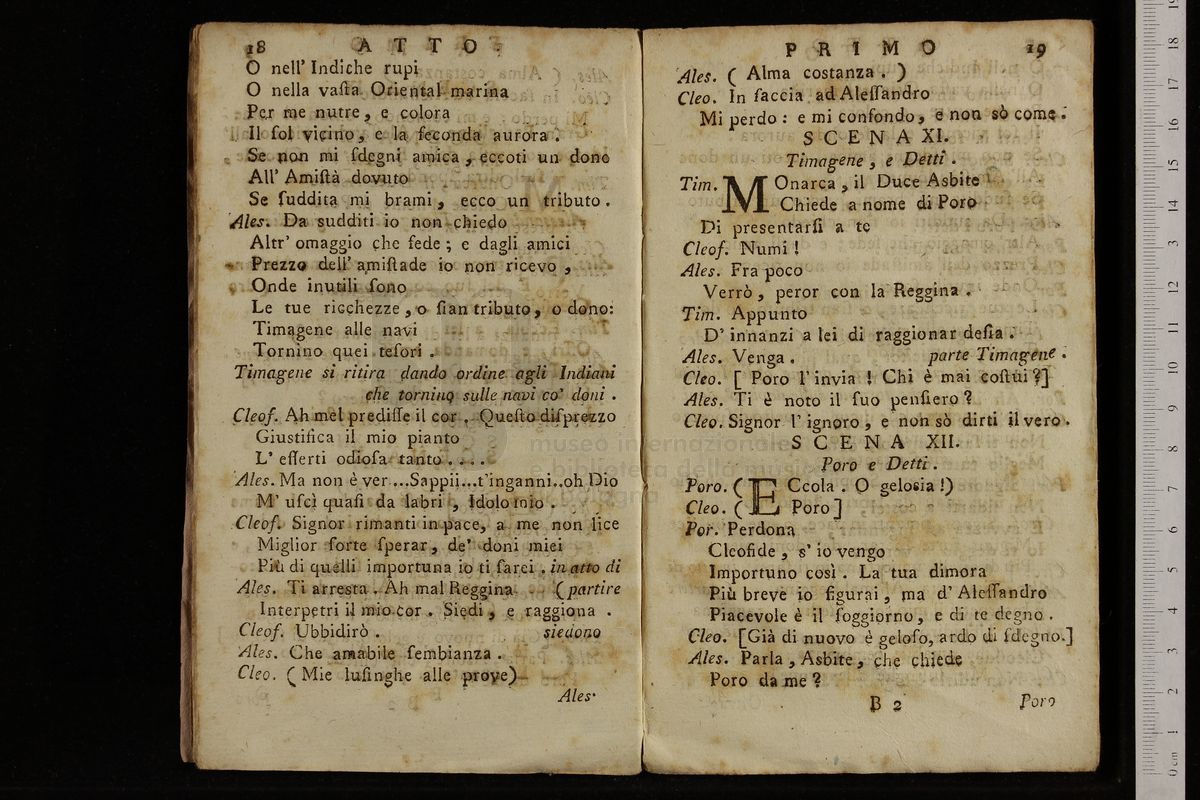 18 ATTO.
O nell' Indiche rupi
O nella vaſta Oriental marina
Per me nutre, e colora
Il ſol vicino, e la feconda aurora.
Se non mi ſdegni amica, eccoti un dono
All' Amiſtà dovuto
Se ſuddita mi brami, ecco un tributo.
Ales. Da sudditi io non chiedo
Altr' omaggio che fede; e dagli amici
Prezzo dell' amiſtade io non ricevo,
Onde inutili ſono
Le tue ricchezze, o ſian tributo, o dono:
Timagene alle navi
Tornino quei teſori.
Timagene si ritira dando ordine agli Indiani
che tornino sulle navi co' doni.
Cleof. Ah mel prediſſe il cor. Queſto diſprezzo
Giustifica il mio pianto
L' eſſerti odioſa tanto....
Ales. Ma non è ver...Sappii...t'inganni..oh Dio
M' uſcì quaſi da labri, Idolo mio.
Cleof. Signor rimanti in pace, a me non lice
Miglior ſorte ſperar, de' doni miei
Più di quelli importuna io ti farei. in atto di
Ales. Ti arresta. Ah mal Reggina (partire
Interpetri il mio cor. Siedi, e raggiona.
Cleof. Ubbidirò. siedono
Ales. Che amabile ſembianza.
Cleo. (Mie luſinghe alle prove)
Ales.
PRIMO 19
Ales. (Alma costanza.)
Cleo. In faccia ad Aleſſandro
Mi perdo: e mi confondo, e non sò come.
SCENA XI.
Timagene, e Detti.
Tim. MOnarca, il Duce Asbite
Chiede a nome di Poro
Di presentarſi a te
Cleof. Numi!
Ales. Fra poco
Verrò, peror con la Reggina.
Tim. Appunto
D' innanzi a lei di raggionar deſia.
Ales. Venga. parte Timagene.
Cleo. [Poro l'invia! Chi è mai coſtui?]
Ales. Ti è noto il ſuo penſiero?
Cleo. Signor l' ignoro, e non sò dirti il vero.
SCENA XII.
Poro e Detti.
Poro. (ECcola. O gelosia!)
Cleo. (Poro]
Por. Perdona
Cleofide, s' io vengo
Importuno così. La tua dimora
Più breve io figurai, ma d' Aleſſandro
Piacevole è il ſoggiorno, e di te degno.
Cleo. [Già di nuovo è geloſo, ardo di ſdegno.]
Ales. Parla, Asbite, che chiede
Poro da me?
B 2 Poro
museo internazionale
e biblioteca della musica
bologna